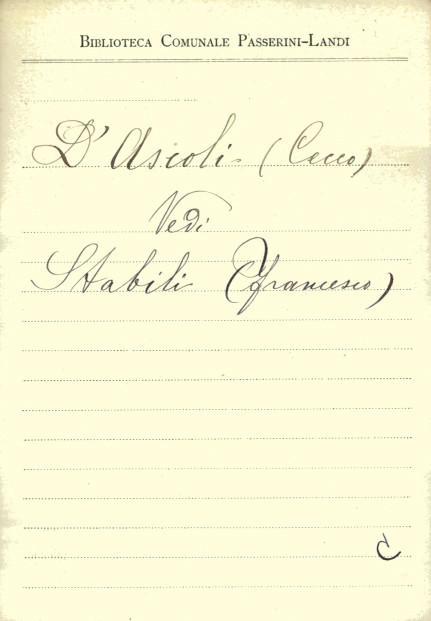 BIBLIOTECA COMUNALE PASSERINI-LANDI
D'Ascoli (Cecco)
Vedi
Stabili (Francesco)
C